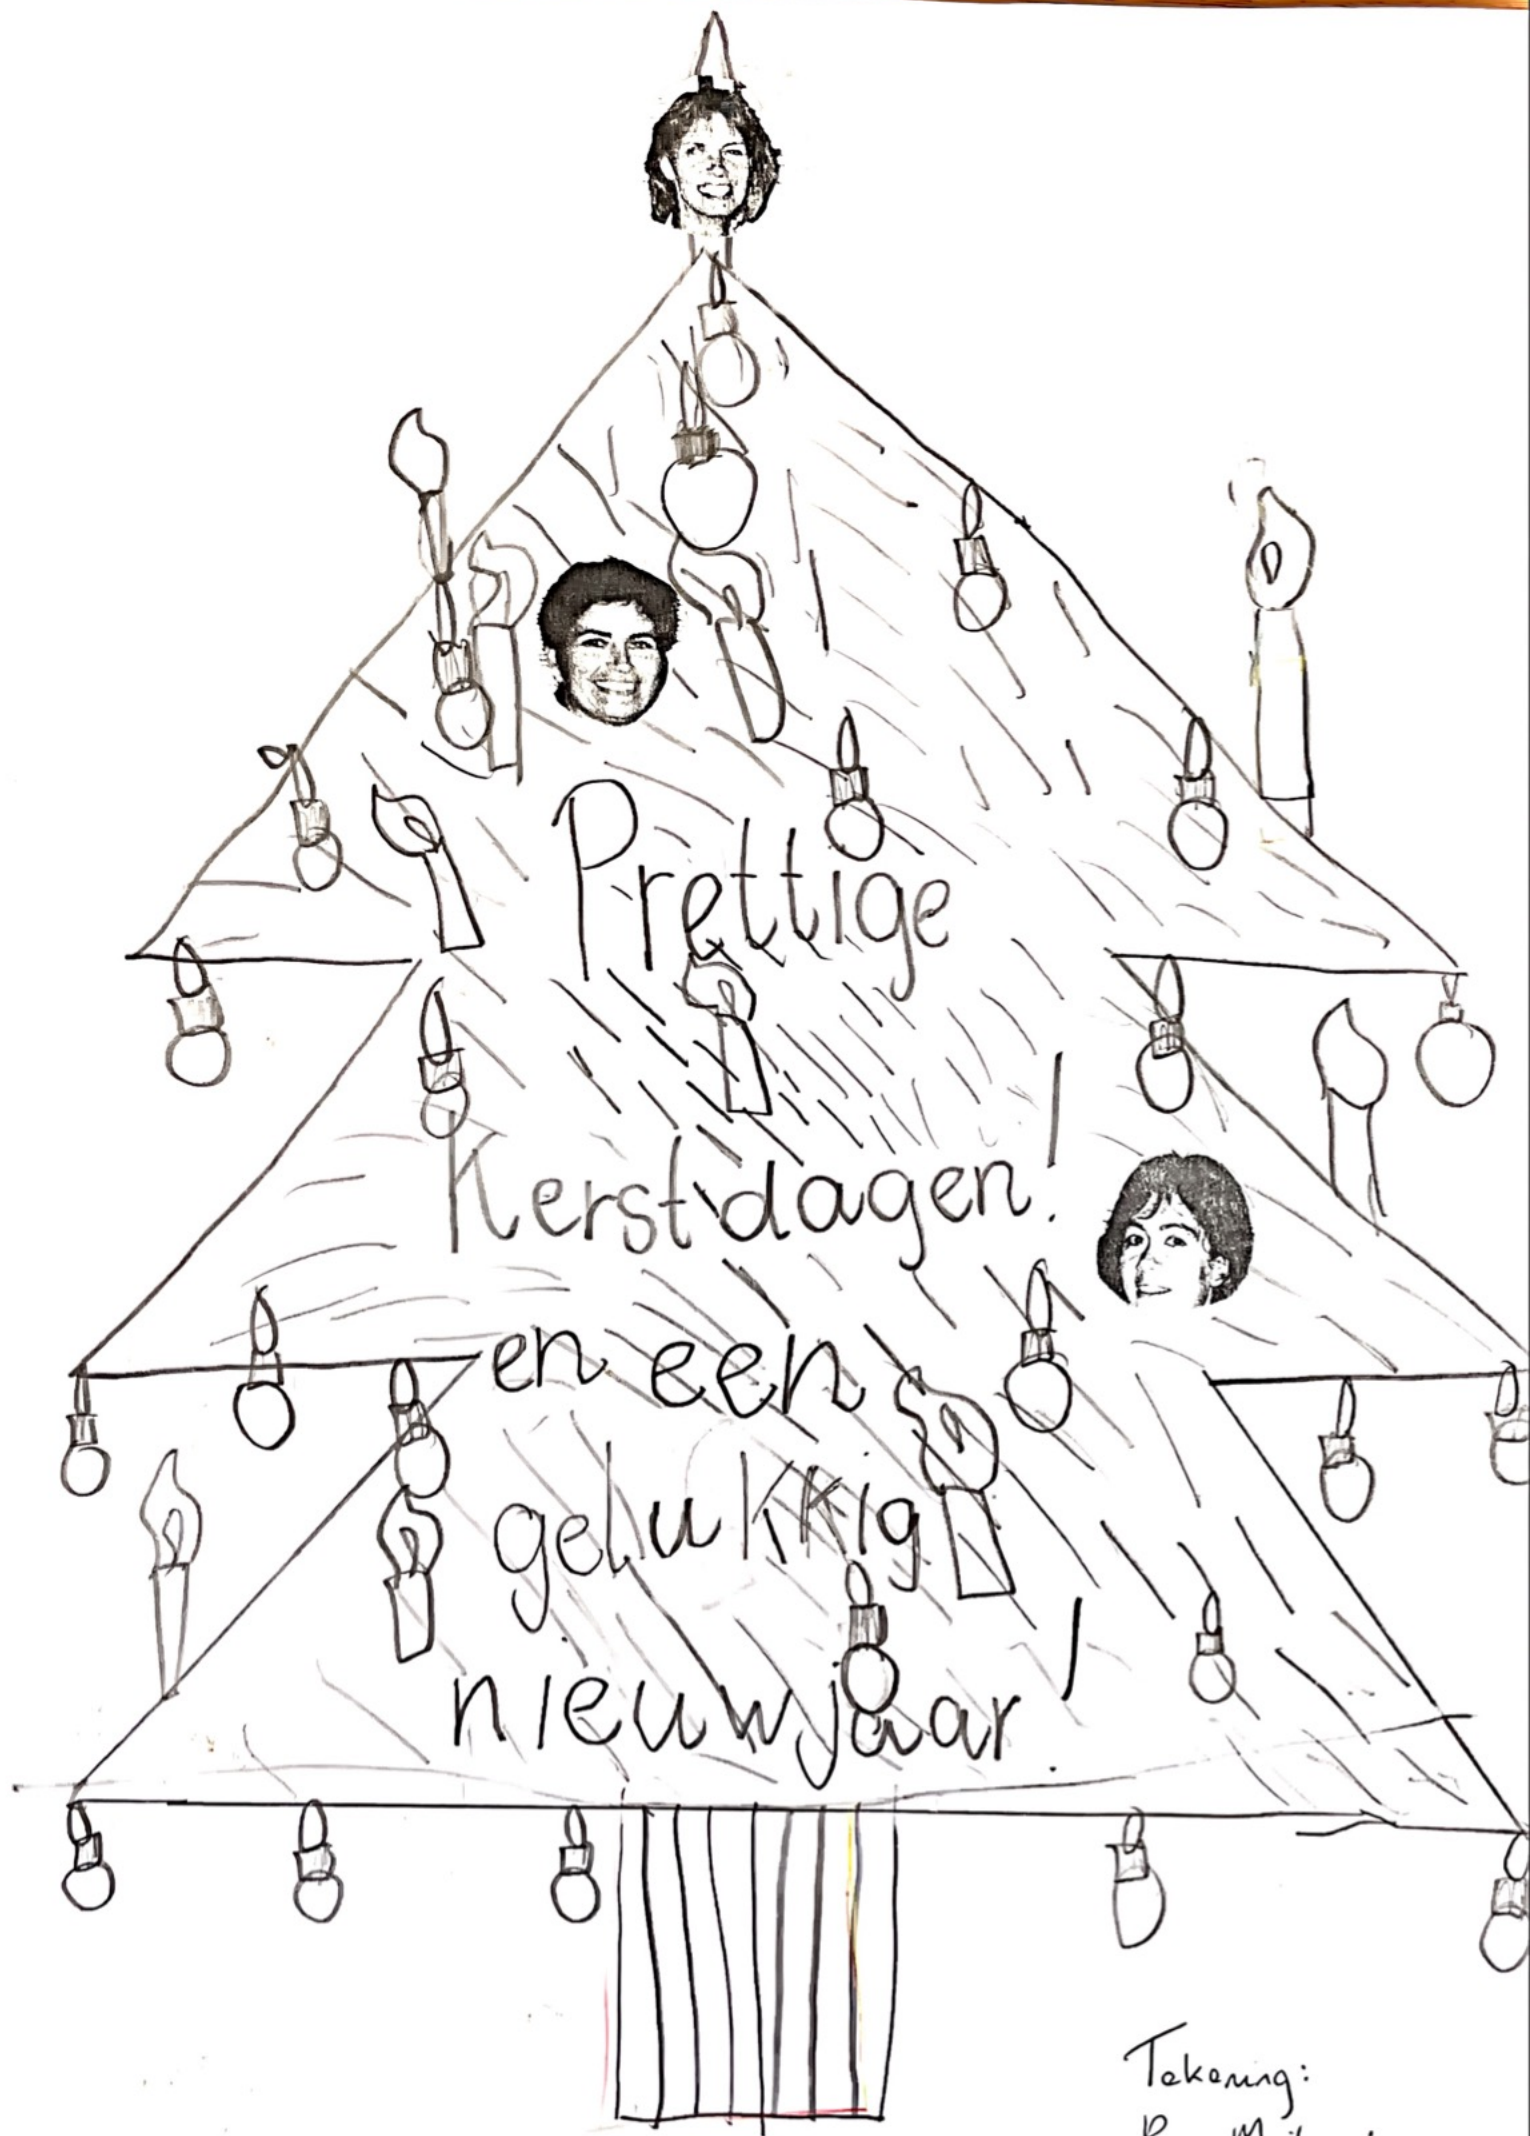 Prettige
Kerstdagen!
en een
gelukkig
nieuwjaar!
Tekening: